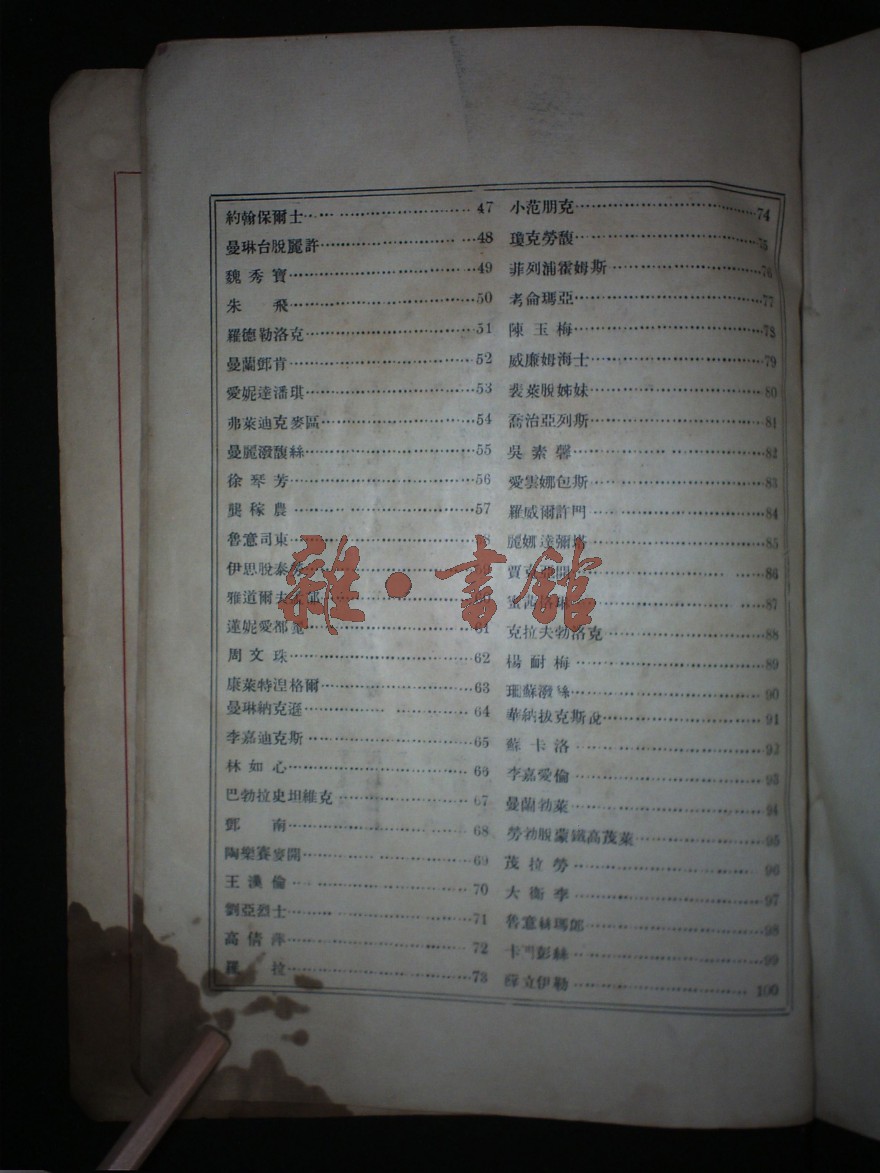 約翰保爾士 47
曼琳台脫麗許 48
魏秀寶 49
朱飛 50
羅德勒洛克 51
曼蘭鄧肯 52
愛妮達潘琪 53
弗萊迪克麥區 54
曼麗潑馥絲 55
徐琴芳 56
龔稼農 57
魯意司東
伊思脫泰
雅道爾夫
蓮妮愛都 61
周文珠 62
康萊特湼格爾 63
曼琳納克遜 64
李嘉迪克斯 65
林如心 66
巴勃拉史坦維克 67
鄧南 68
陶樂賽麥開 69
王漢倫 70
劉亞烈士 71
高倩萍 72
羅拉 73
小范朋克 74
瓊克勞馥 75
菲列浦霍姆斯 76
考侖瑪亞 77
陳玉梅 78
威廉姆海士 79
裴萊脫姊妹 80
喬治亞列斯 81
吳素馨 82
愛雲娜包斯 83
羅威爾許門 84
麗娜達彌塔 85
賈克 86
蜜茜 87
克拉夫勃洛克 88
楊耐梅 89
珊蘇潑 90
華納拔克斯說 91
蘇卡洛 92
李嘉愛倫 93
曼蘭勃萊 94
勞勃脫蒙鐵高茂萊 95
茂拉勞 96
大衛李 97
魯意絲瑪郎 98
卡門彭絲 99
薛立伊勒 100
雜·書館